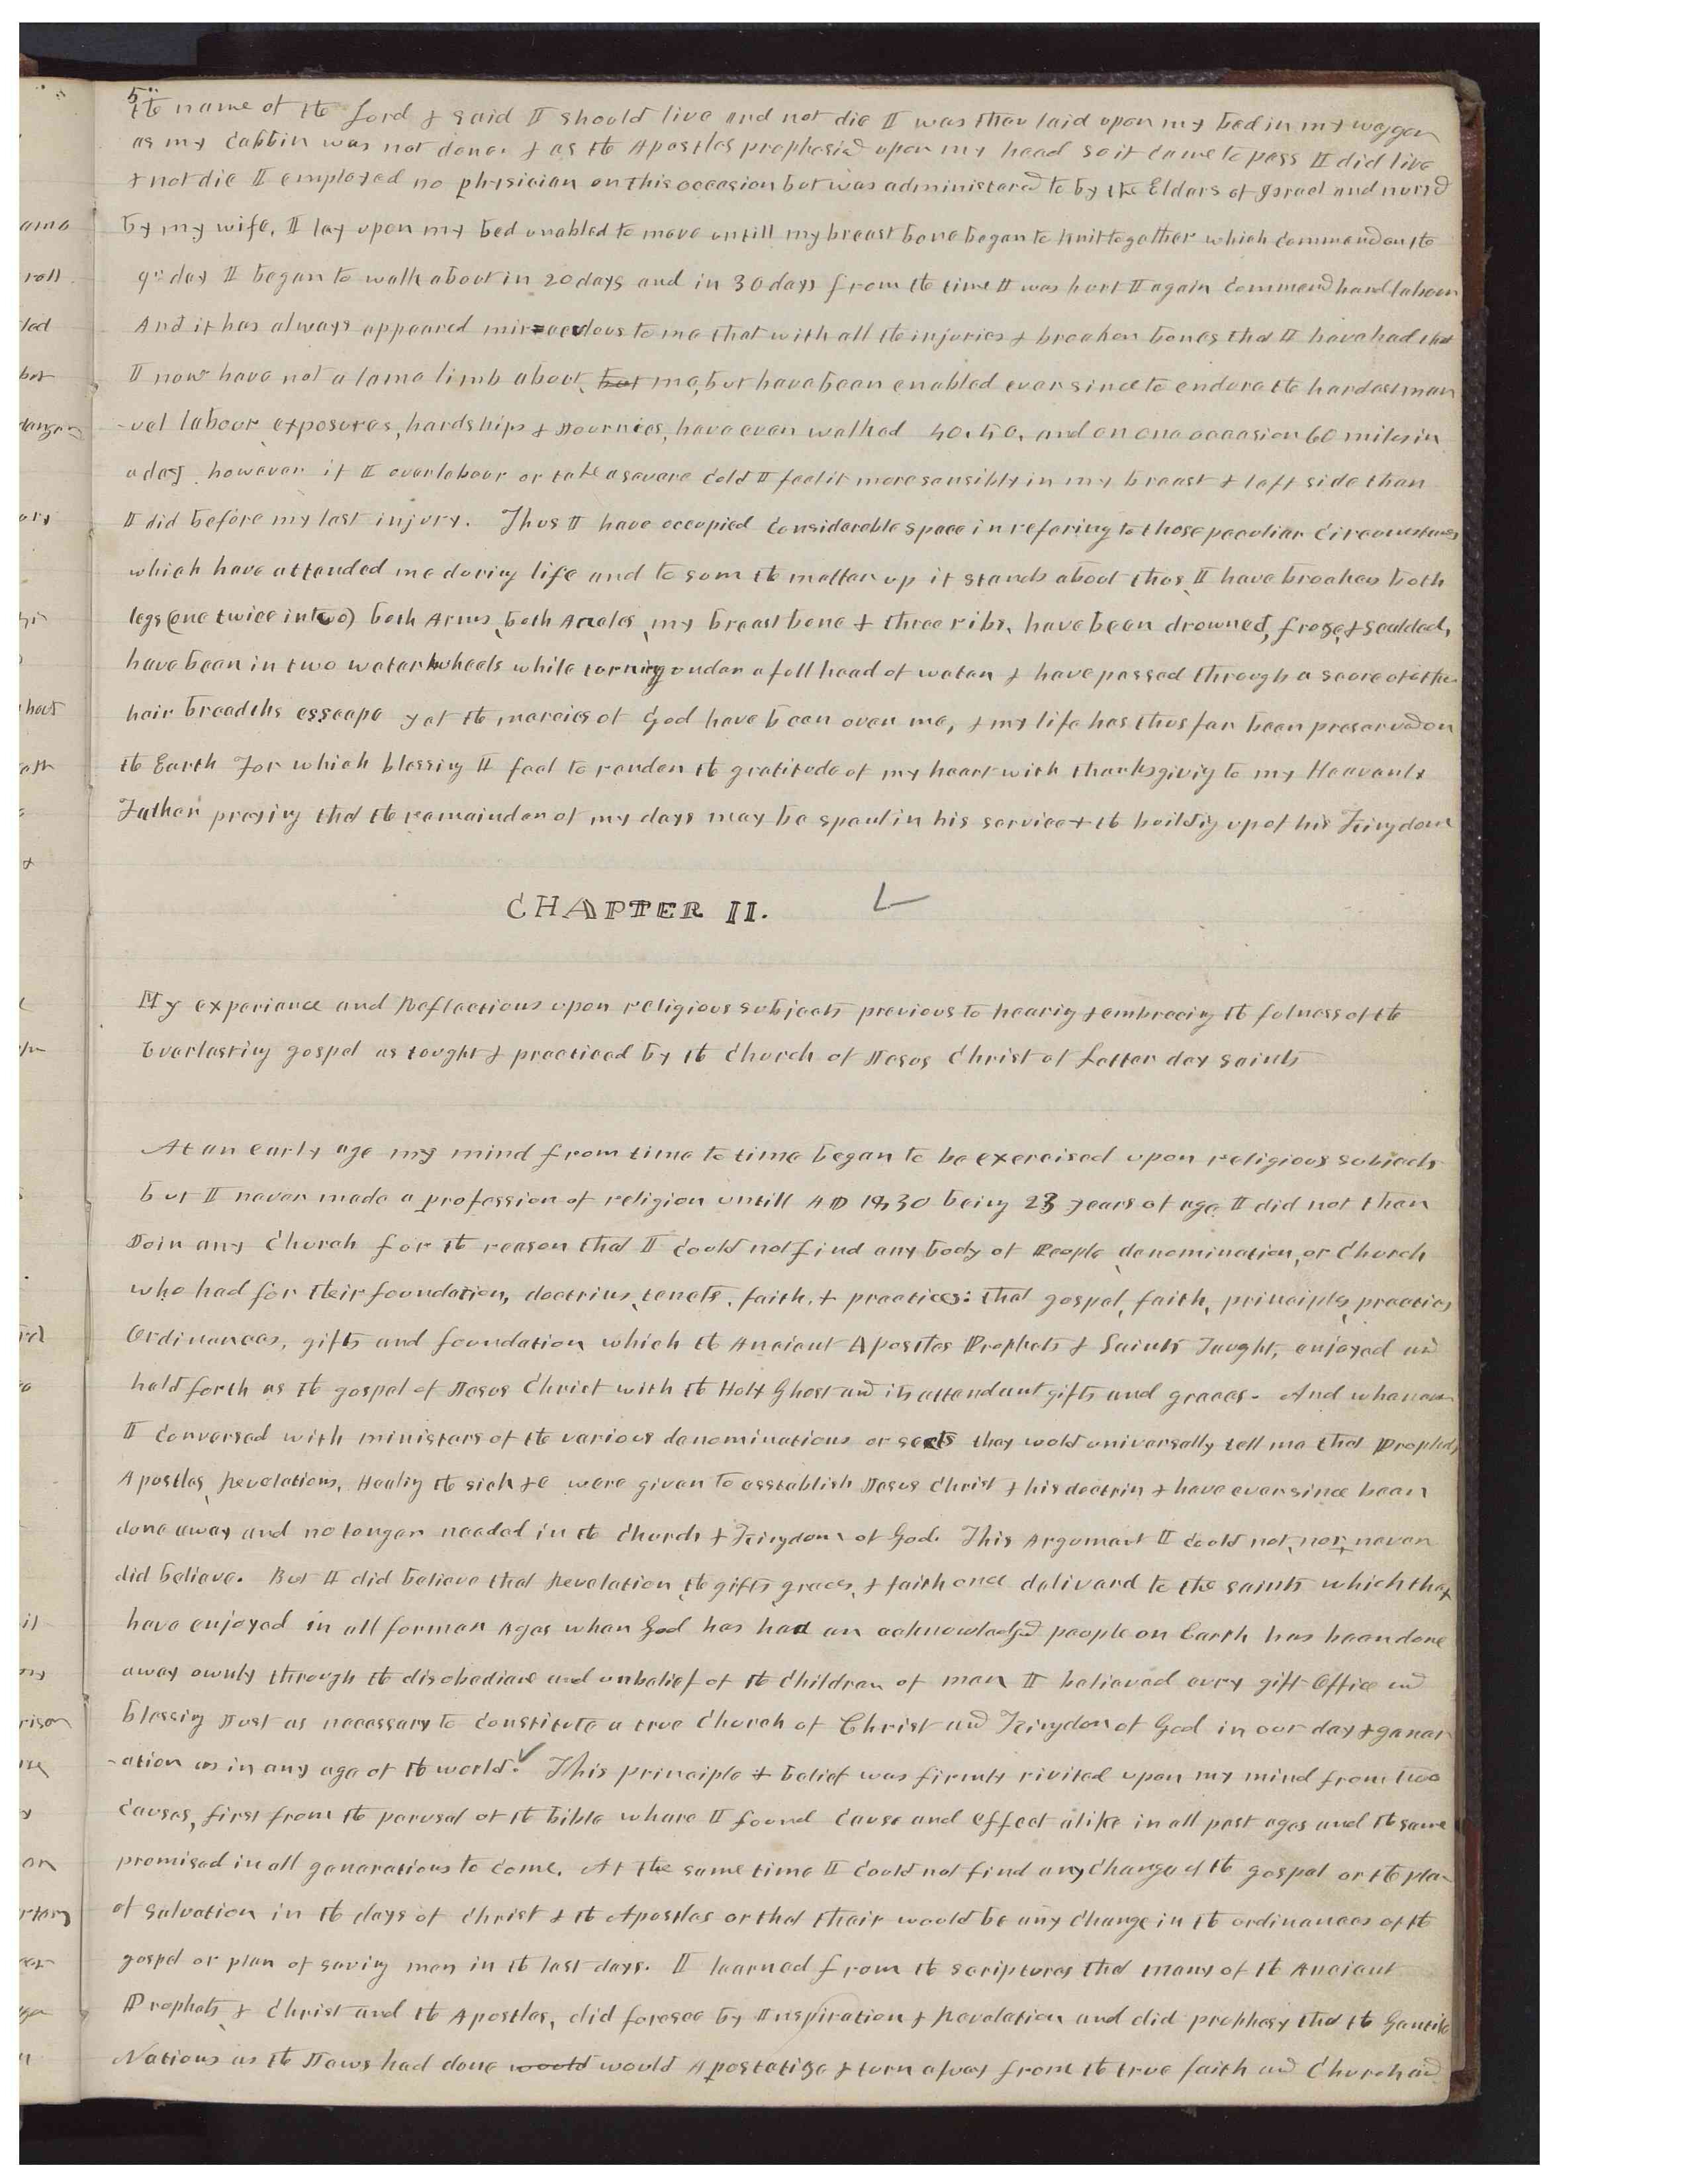 5
the name of the Lord & said I should live and not die I was then laid upon my bed in my waggon
as my cabbin was not done. & as the Apostles prophesied upon my head so it came to pass I did live
& not die I employed no physician on this occasion but was administered to by the Elders of Israel and nursed
by my wife. I lay upon my bed unabled to move untill my breast bone began to knit together which commenced on the
9th day I began to walk about in 20 days and in 30 days from the time I was hurt I again commenced hard labour
And it has always appeared miraculous to me that with all the injuries & breaken bones that I have had that
I now have not a lame limb about, but me, but have been enabled ever since to endure the hardest man
-uel labour exposures, hardships & Journies, have even walked 40. 50. and on one occasion 60 miles in
a day. however if I overlabour or take a severe cold I feel it more sensibly in my breast & left side than
I did before my last injury. Thus I have occupied considerable space in refering to those peculiar circumstances
which have attended me during life and to sum the matter up it stands about thus, I have broaken both
legs (one twice in two) both Arms, both Ancles, my breast bone & three ribs, have been drowned, froze, & scalded,
have been in two water wheels while turning under a full head of water & have passed through a score of other
hair breadths esscape yet the mercies of God have been over me, & my life has thus far been preserved on
the Earth For which blessing I feel to render the gratitude of my heart with thanksgiving to my Heavenly
Father praying that the remainder of my days may be spent in his service & the building up of his Kingdom
CHAPTER II.
My experiance and Reflections upon religious subjects previous to hearing & embracing the fulness of the
Everlasting gospel as tought & practiced by the Church of Jesus Christ of Latter day saints
At an early age my mind from time to time began to be exercised upon religious subjects
but I never made a profession of religion untill AD 1830 being 23 years of age I did not then
Join any Church for the reason that I could not find any body of People, denomination, or Church
who had for their foundation, doctrins, tenets, faith, & practices: that gospel, faith, principles, practies
Ordinances, gifts and foundation which the Ancient Apostles Prophets & Saints Taught, enjoyed and
held forth as the gospel of Jesus Christ with the Holy Ghost and its attendant gifts and graces. And whenever
I conversed with ministers of the various denominations or sects they wold universally tell me that Prophets,
Apostles, Revelations, Healing the sick &c were given to esstablish Jesus Christ & his doctrin & have ever since been
done away and no longer needed in the Church & Kingdom of God. This Argument I could not, nor, never
did believe. But I did believe that Revelation, the gifts graces, & faith once deliverd to the saints which they
have enjoyed in all former Ages when God has had an acknowledged people on Earth has been done
away ownly through the disobediance and unbelief of the children of men I believed evry gift Office and
blessing Just as necessary to constitute a true Church of Christ and Kingdom of God in our day & gener
-ation as in any age of the world. This principle & belief was firmly rivited upon my mind from two
causes, first from the perusal of the bible whare I found cause and effect alike in all past ages and the same
promised in all generations to come. At the same time I could not find any change of the gospel or the plan
of salvation in the days of Christ & the Apostles or that their would be any change in the ordinances of the
gospel or plan of saving men in the last days. I learned from the scriptures that many of the Ancient
Prophets, & Christ and the Apostles, did foresee by Inspiration & Revelation and did prophesy that the Gentile
Nations as the Jaws had done would would Apostatize & turn away from the true faith and Church and